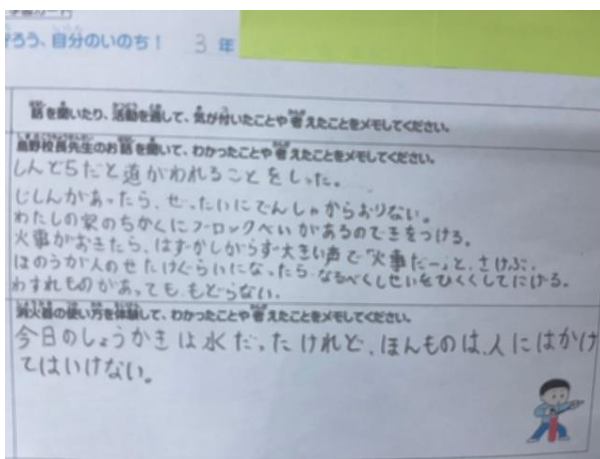 学習カード
ぞろう、自分のいのち！ 3年
話を聞いたり、活動を通して、気が付いたことや考えたことをメモしてください。
島野校長先生のお話を聞いて、わかったことや考えたことをメモしてください。
しんど5だと道がわれることをしった。
じしんがあったら、せったいにでんしゃからおりない。
わたしの家のちかくにブロックべいがあるのできをつける。
火事がおきたら、はずかしがらず大きい声で「火事だー」と、さけぶ。
ほのうが人のせたけぐらいになったら、なるべくしせいをひくくしてにげる。
わすれものがあっても、もどらない。
消火器の使い方を体験して、わかったことや考えたことをメモしてください。
今日のしょうかきは水だったけれど、ほんものは、人にはかけ
てはいけない。